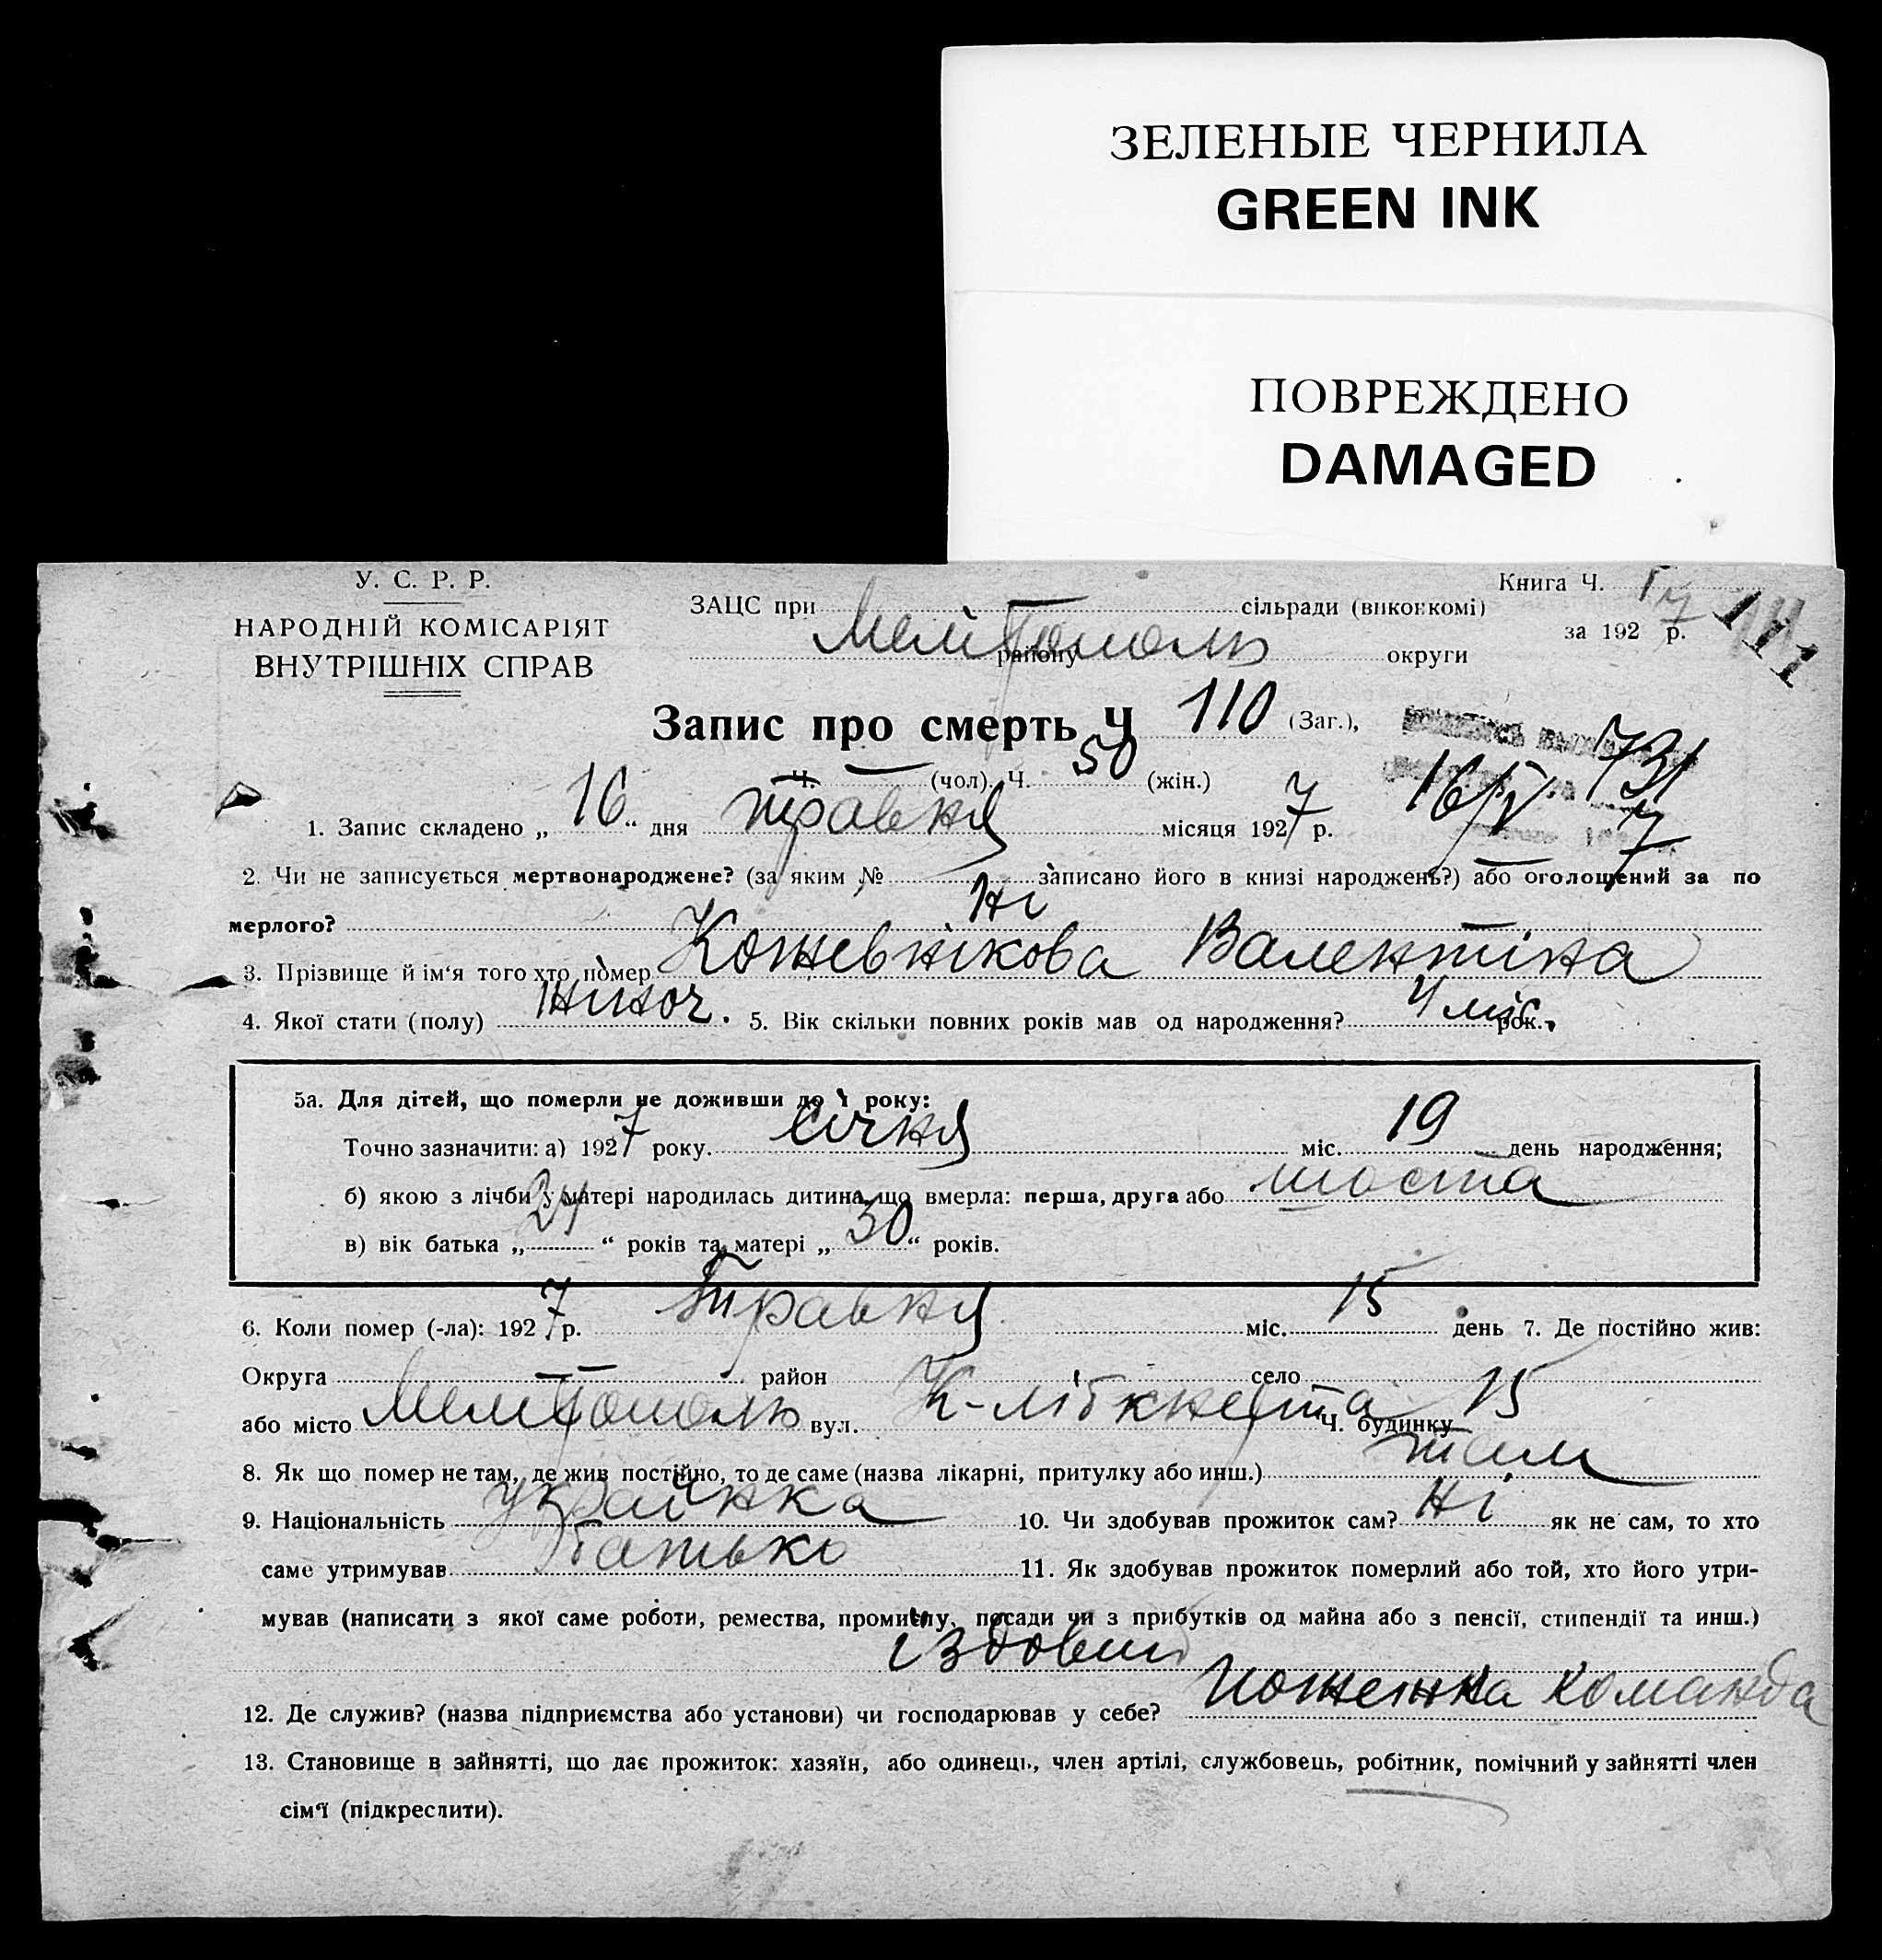 ЗЕЛЕНЫЕ ЧЕРНИЛА
GREEN INK
ПОВРЕЖДЕНО
DAMAGED
У. С. Р. Р.
НАРОДНІЙ КОМІСАРІЯТ
ВНУТРІШНІХ СПРАВ
Книга Ч. I
за 1927 р.
111
ЗАЦС при сільради (виконкомі)
Мелітополь району округи
Запис про смерть Ч 110 (Заг.),
Ч. — (чол). Ч. 50 (жін.)
731
16/V 7
1. Запис складено „16“ дня травня місяця 1927 р.
2. Чи не записується мертвонароджене? (за яким № записано його в книзі народжень?) або оголощений за по
мерлого? Ні
3. Прізвище й ім'я того хто помер Кожевнікова Валентіна
4. Якої стати (полу) жиноч. 5. Вік скільки повних років мав од народження? 4 міс. рок.
5а. Для дітей, що померли не доживши до 1 року:
Точно зазначити: а) 1927 року. січня міс. 19 день народження;
б) якою з лічби у матері народилась дитина, що вмерла: перша, друга або шоста
в) вік батька „24“ років та матері „30“ років.
6. Коли помер (-ла): 1927 р. травня міс. 15 день 7. Де постійно жив:
Округа район село
або місто Мелітополь вул. К-лібкнехта Ч. будинку 15
8. Як що помер не там, де жив постійно, то де саме (назва лікарні, притулку або инш.) там
9. Національність українка 10. Чи здобував прожиток сам? Ні як не сам, то хто
саме утримував батько 11. Як здобував прожиток померлий або той, хто його утри-
мував (написати з якої саме роботи, ремества, промислу, посади чи з прибутків од майна або з пенсії, стипендії та инш.)
їздовий
12. Де служив? (назва підприємства або установи) чи господарював у себе? Пожежна команда
13. Становище в зайнятті, що дає прожиток: хазяїн, або одинець, член артілі, службовець, робітник, помічний у зайнятті член
сім'ї (підкреслити).